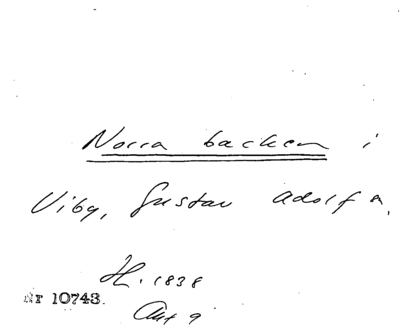 Norra backen i
Viby, Gustav Adolf
H. 1838
Nr 10743.